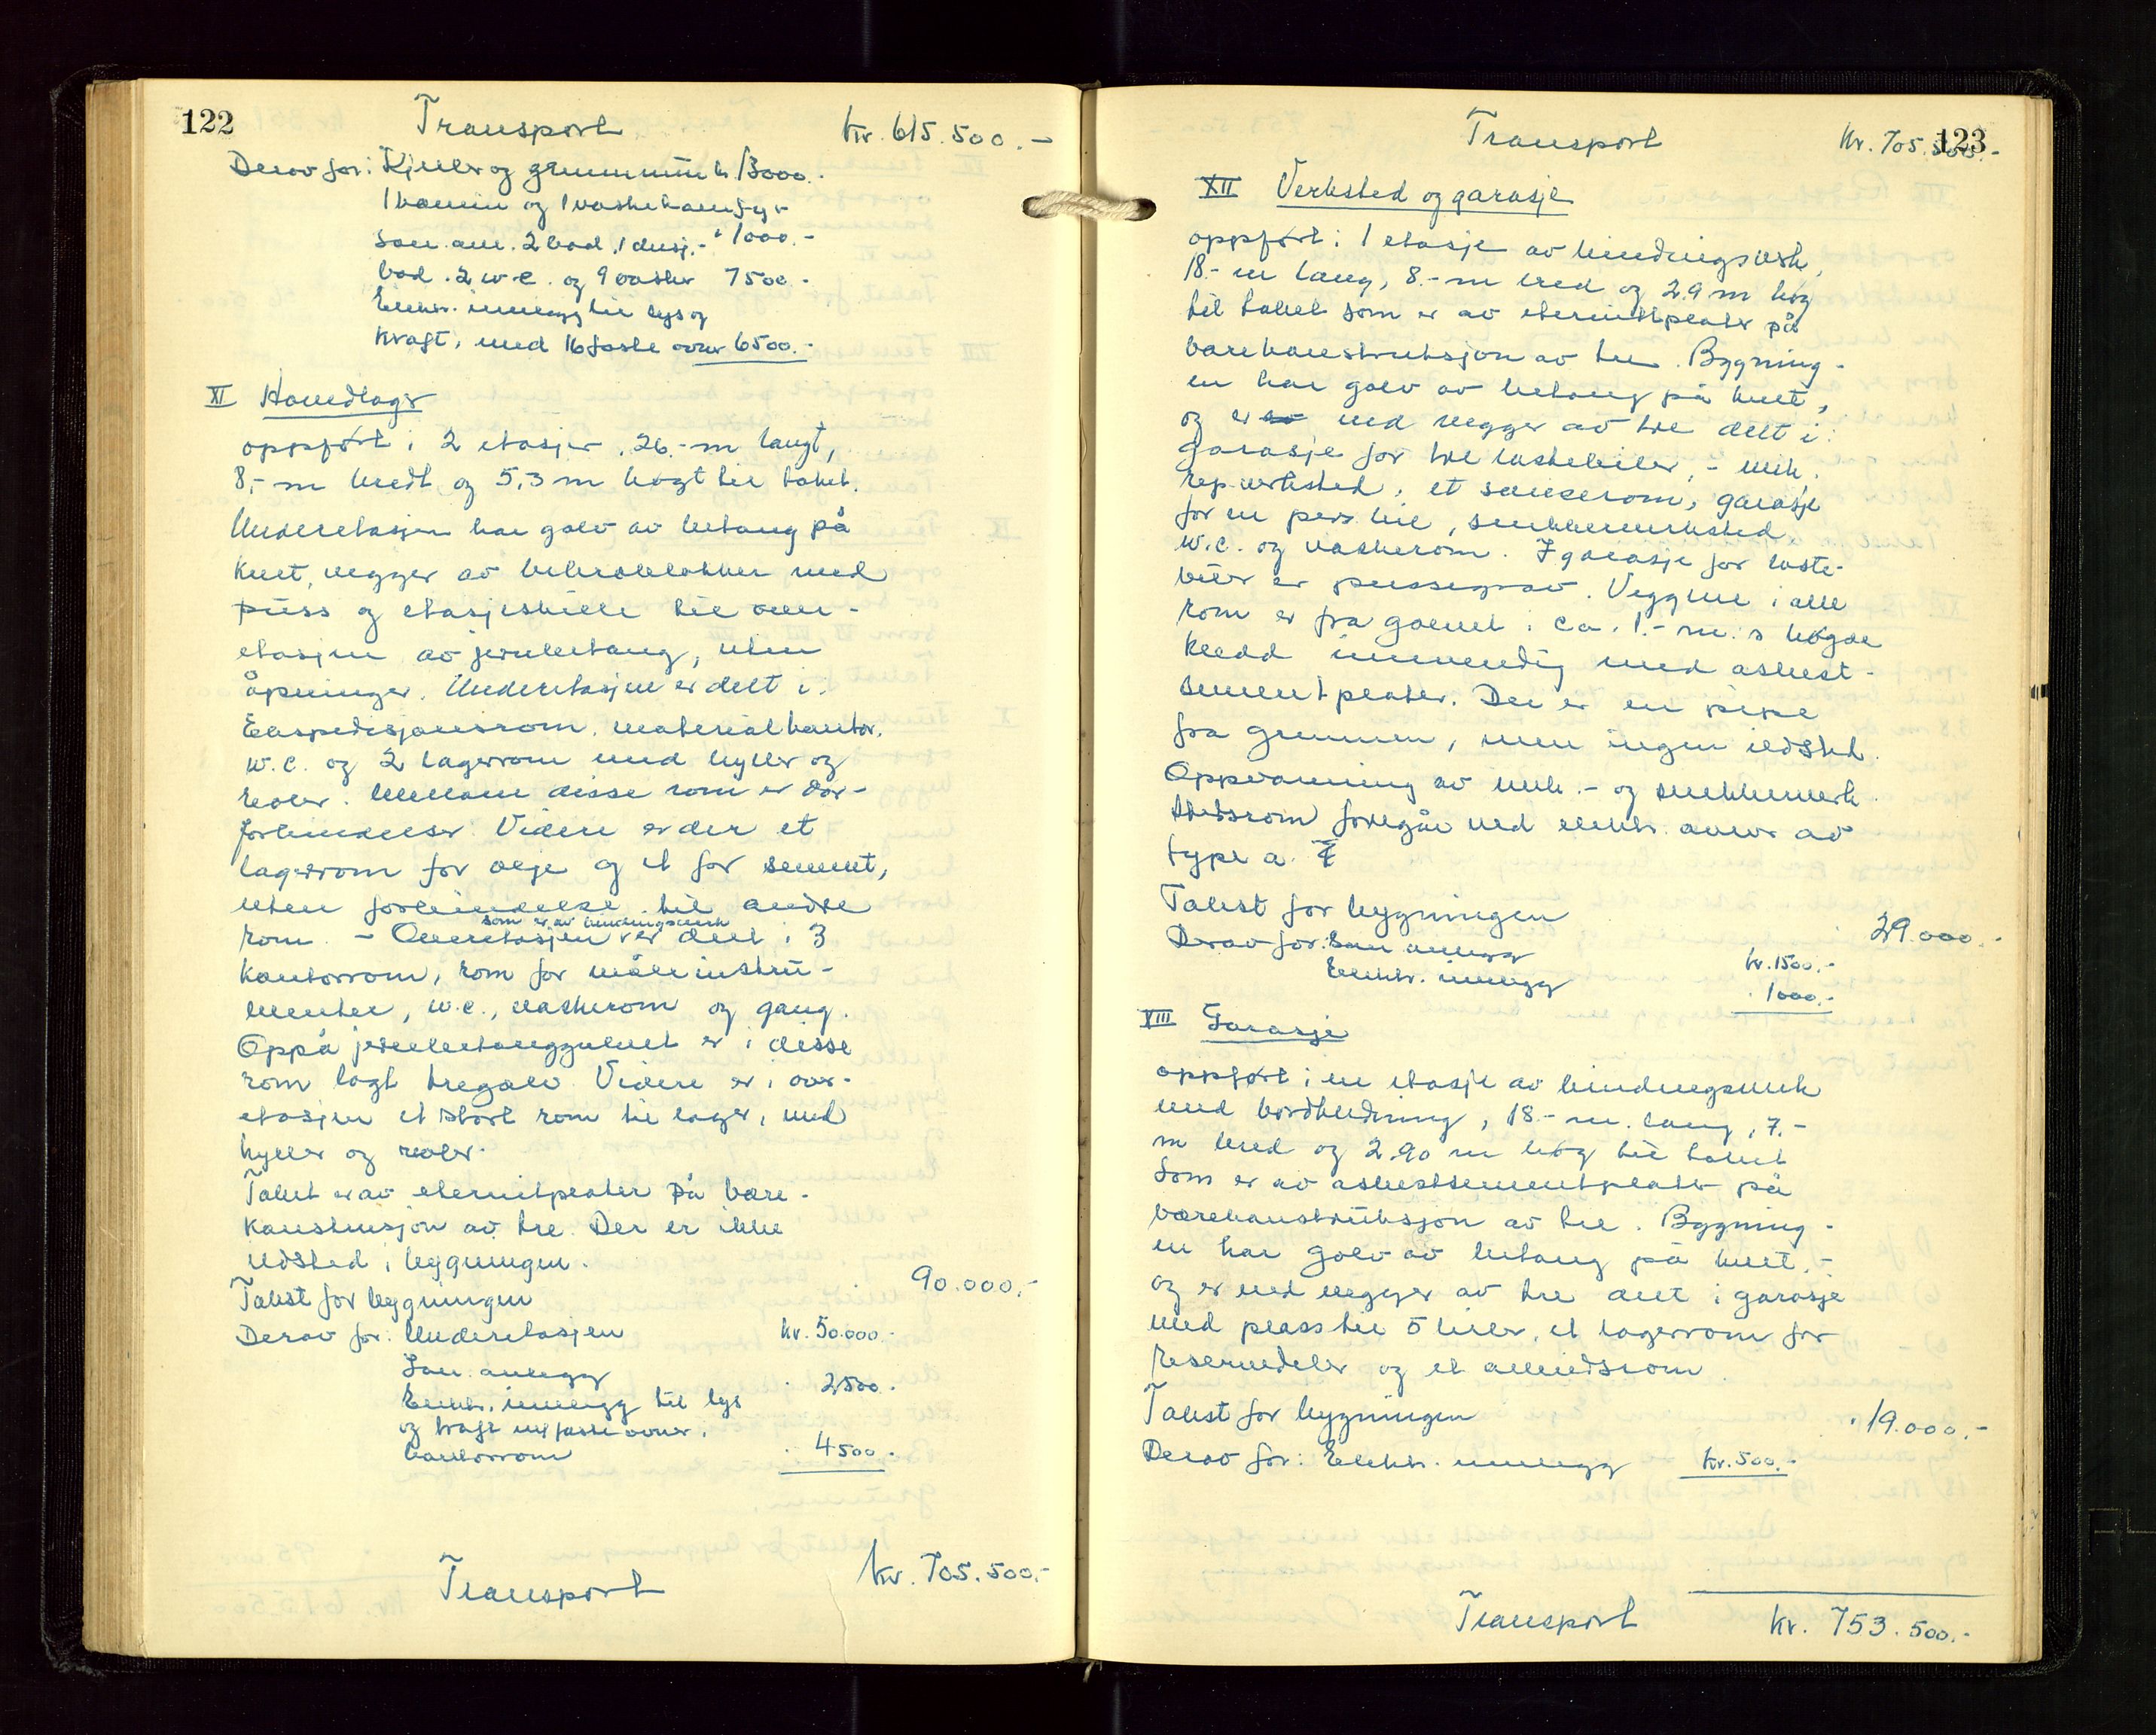 122
Transport
kr. 615.500.-
Derav for: Kjeller og grunnmur kr. 13000.-
1 kamin og 1 vaskekamfyr
San. anl. 2 bad, 1 dusj.- " 1000.-
bad. 2 w.c. og 9 vasker 7500.-
Elektr. innlegg til lys og
kraft, med 16 faste ovner 6500.-
XI Hovedlager
oppført i 2 etasjer, 26.-m langt,
8,-m bredt og 5,3 m høgt til taket.
Underetasjen har golv av betong på
kult, vegger av betonblokker med
puss og etasjeskille til over-
etasjen av jernbetong, uten
åpninger. Underetasjen er delt i:
Ekspedisjonsrom, materialkontor,
w.c. og 2 lagerrom med hyller og
reoler. Mellom disse rom er dør-
forbindelser. Videre er der et
lagerrom for olje og et for sement,
uten forbindelse til andre
som er av bindingsverk
rom. - Overetasjen er delt i 3
kontorrom, rom for måleinstru-
menter, w.c., vaskerom og gang.
Oppå jernbetonggulvet er i disse
rom lagt tregolv. Videre er i over-
etasjen et stort rom til lager, med
hyller og reoler.
Taket er av eternitplater på bære-
konstrusjon av tre. Der er ikke
ildsted i bygningen.
Takst for bygningen
90.000,-
Derav for: Underetasjen kr. 50.000.-
San. anlegg . 2500.-
Elektr. innlegg til lys
og kraft m/ faste ovner i
kontorrom . 4500.-
Transport
kr. 705.500,-
123
Transport
kr. 705.500.-
XII Verksted og garasje
oppført i 1 etasje av bindingsverk,
18.-m lang, 8.-m bred og 2.9 m høg
til taket som er av eternittplater på
bærekonstruksjon av tre. Bygning-
en har golv av betong på kult,
og er med vegger av tre delt i:
garasje for tre lastebiler, - mek.
rep.verksted, et smierom, garasje
for en pers. bil, snekkerverksted
w.c. og vaskerom. I garasje for laste-
biler er pussegrav. Veggene i alle
rom er fra golvet i ca. 1.- m.s høgde
kledd innvendig med asbest-
sementplater. Der er en pipe
fra grunnen, men ingen ildsted.
Oppvarming av mek.- og snekkerverk-
stedsrom foregår ved elektr. ovner av
type a.
Takst for bygningen
29.000.-
Derav for: San anlegg kr. 1500.-
Elektr. innlegg . 1000.-
XIII Garasje
oppført i en etasje av bindingsverk
med bordkledning, 18.- m. lang, 7.-
m bred og 2.90 m høg til taket
som er av asbestsementplater på
bærekonstruksjon av tre. Bygning-
en har golv av betong på kult,-
og er med vegger av tre delt i garasje
med plass til 5 biler, et lagerrom for
reservedeler og et arbeidsrom.
Takst for bygningen
. 19.000.-
Derav for: Elektr. innlegg kr. 500.-
Transport
kr. 753.500.-